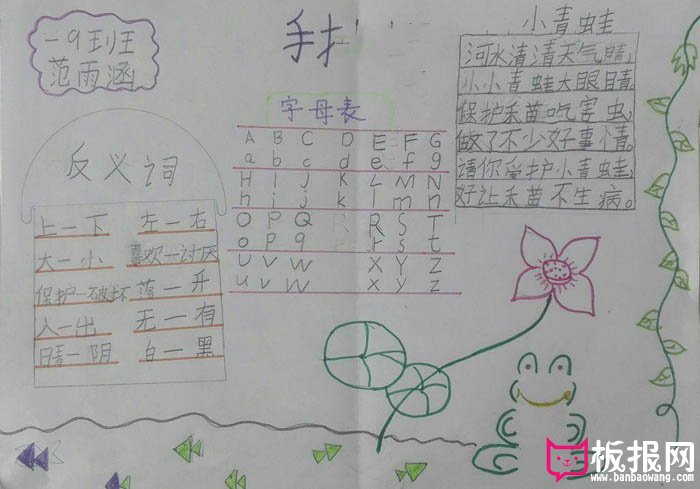 一9班
范雨涵
手
小青蛙
河水清清天气晴,
小小青蛙大眼睛。
保护禾苗吃害虫,
做了不少好事情。
请你爱护小青蛙,
好让禾苗不生病。
字母表
A B C D E F G
a b c d e f g
H I J K L M N
h i j k l m n
O P Q R S T
o p q r s t
U V W X Y Z
u v w x y z
反义词
上一下 左一右
大一小 喜欢一讨厌
保护一破坏 落一升
入一出 无一有
晴一阴 白一黑
板报网
www.banbaowang.com